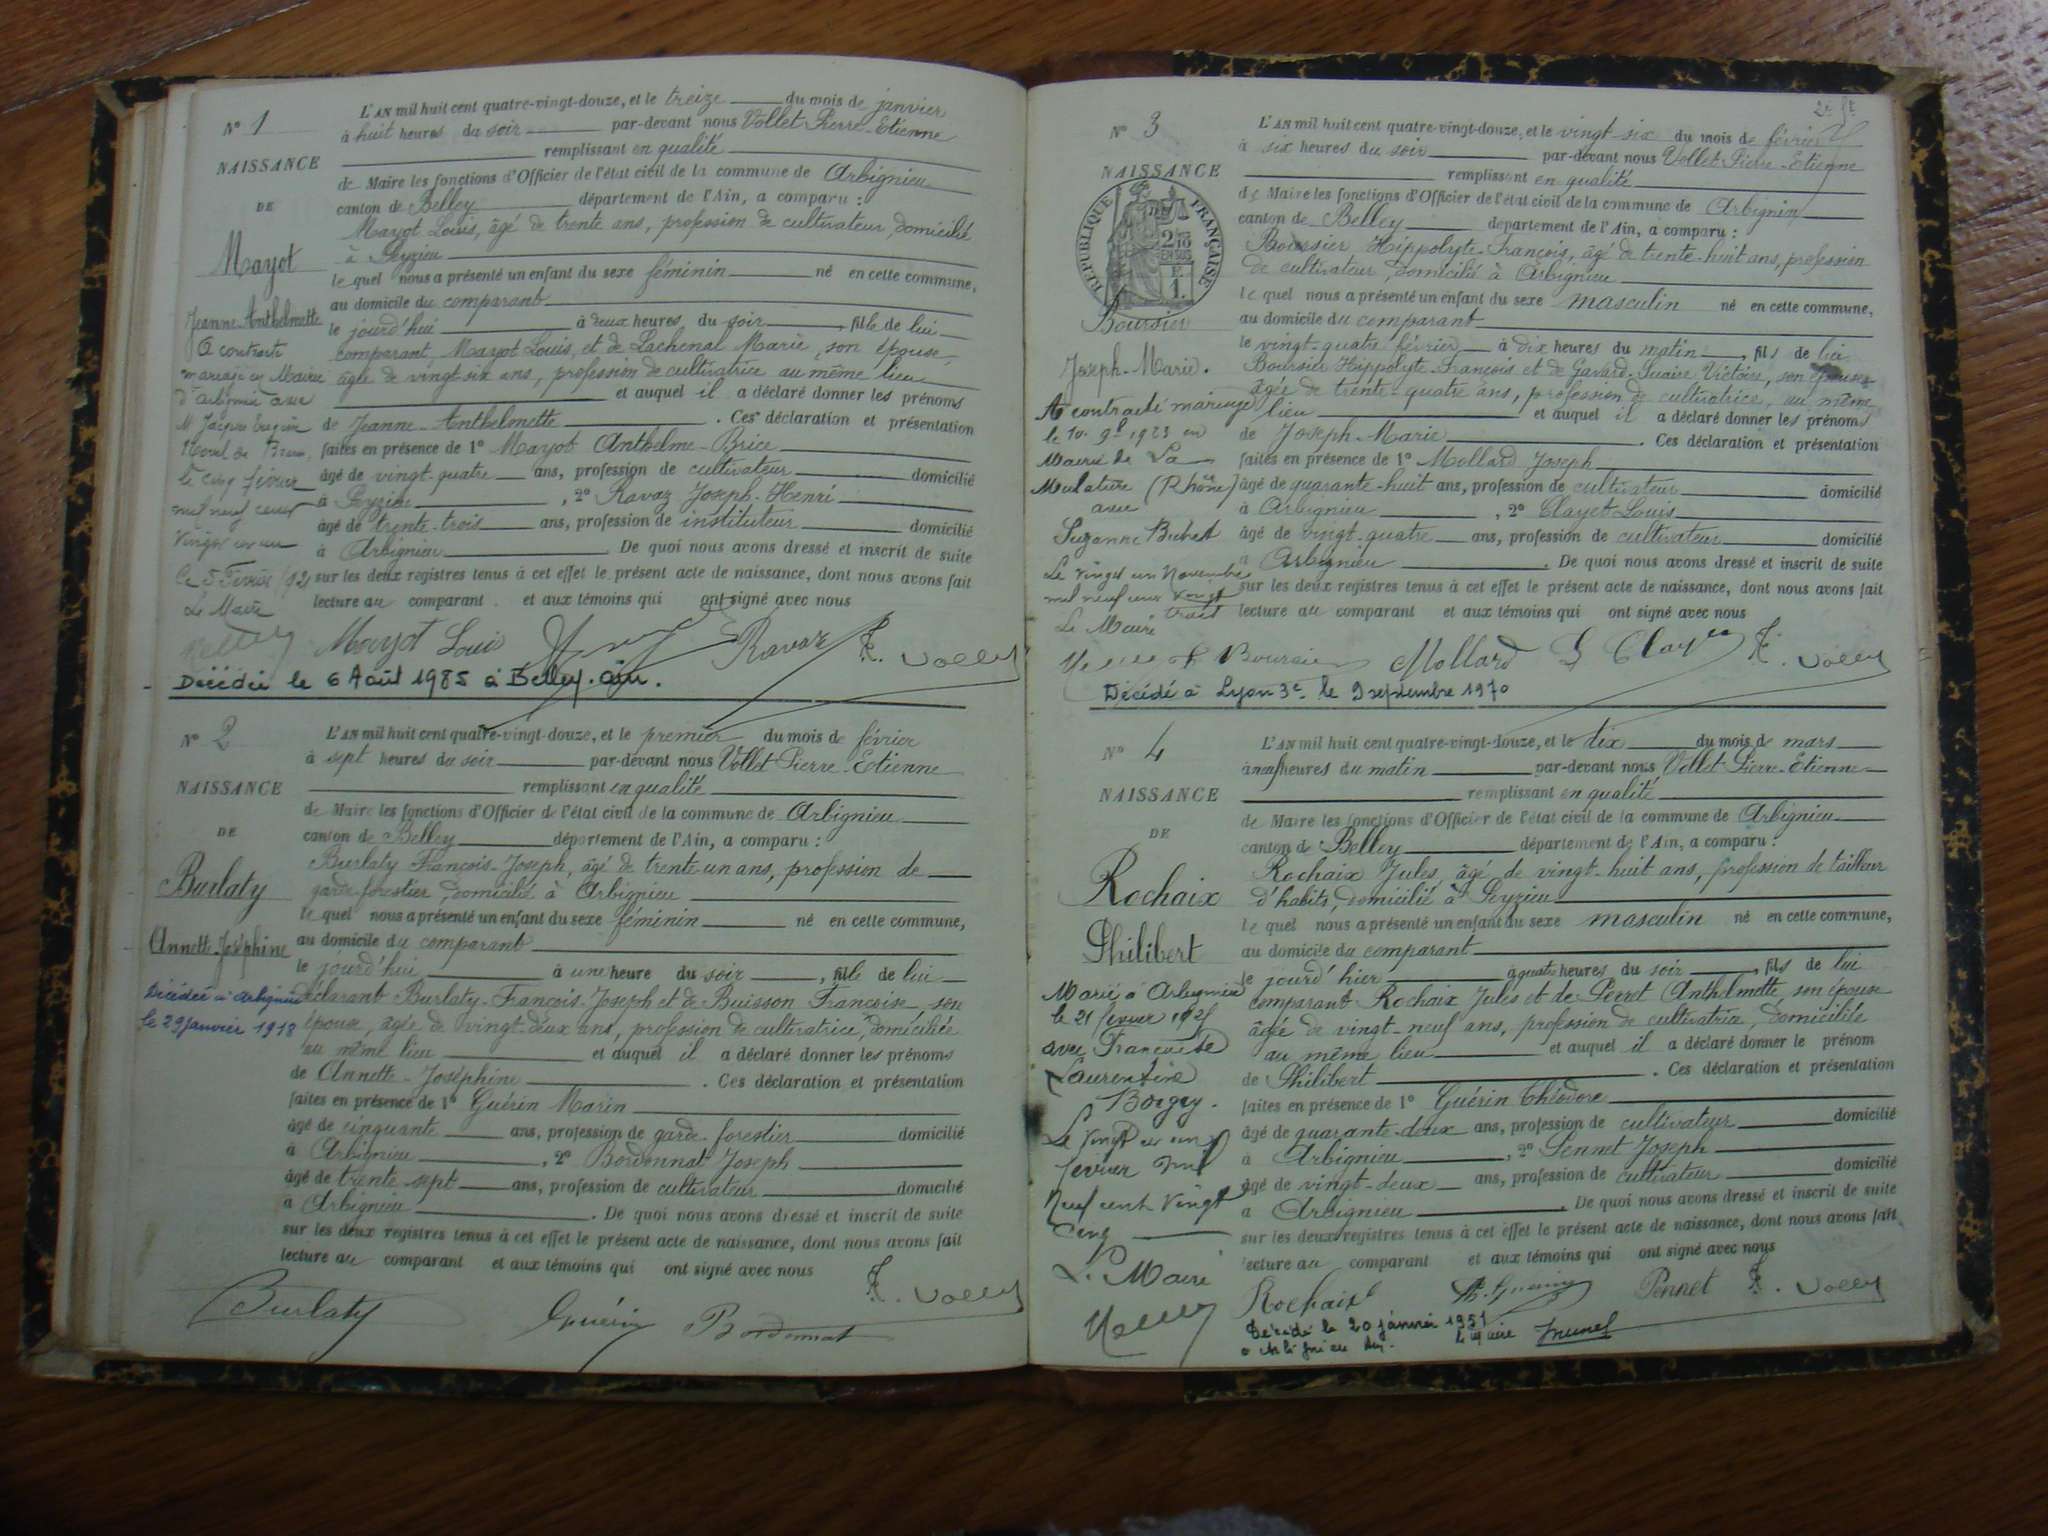 N° 1
NAISSANCE
DE
Mayot
Jeanne-Anthelmette
A contracté
mariage en Mairie
d'Arbignieu avec
le cinq février
mil neuf cent
vingt et un
Le Maire
L'AN mil huit cent quatre-vingt-douze, et le treize du mois de janvier
à huit heures du soir par-devant nous Vollet Pierre-Etienne
remplissant en qualité
de Maire les fonctions d'Officier de l'état civil de la commune de Arbignieu
canton de Belley département de l'Ain, a comparu :
Mayot Louis, âgé de trente ans, profession de cultivateur, domicilié
à Peyzieu
le quel nous a présenté un enfant du sexe féminin né en cette commune,
au domicile du comparant
le jourd'hui à deux heures du soir, fille de lui
comparant Mayot Louis et de Lachenal Marie, son épouse,
âgée de vingt-six ans, profession de cultivatrice au même lieu
et auquel il a déclaré donner les prénoms
de Jeanne-Anthelmette. Ces déclaration et présentation
faites en présence de 1° Mayot Anthelme-Brice
âgé de vingt-quatre ans, profession de cultivateur domicilié
à Peyzieu, 2° Ravaz Joseph-Henri
âgé de trente-trois ans, profession de instituteur domicilié
à Arbignieu. De quoi nous avons dressé et inscrit de suite
sur les deux registres tenus à cet effet le présent acte de naissance, dont nous avons fait
lecture au comparant et aux témoins qui ont signé avec nous
Mayot Louis Ravaz
Décédée le 6 Août 1985 à Belley. Ain.
N° 2
NAISSANCE
DE
Burlaty
Annette-Joséphine
Décédée à Arbignieu
le 29 janvier 1918
L'AN mil huit cent quatre-vingt-douze, et le premier du mois de février
à sept heures du soir par-devant nous Vollet Pierre-Etienne
remplissant en qualité
de Maire les fonctions d'Officier de l'état civil de la commune de Arbignieu
canton de Belley département de l'Ain, a comparu :
Burlaty François-Joseph, âgé de trente-un ans, profession de
garde-forestier, domicilié à Arbignieu
le quel nous a présenté un enfant du sexe féminin né en cette commune,
au domicile du comparant
le jourd'hui à une heure du soir, fille de lui
déclarant Burlaty-François-Joseph et de Buisson Françoise, son
épouse, âgée de vingt-deux ans, profession de cultivatrice, domiciliée
au même lieu et auquel il a déclaré donner les prénoms
de Annette-Joséphine. Ces déclaration et présentation
faites en présence de 1° Guérin Marin
âgé de cinquante ans, profession de garde-forestier domicilié
à Arbignieu, 2° Bordonnat Joseph
âgé de trente-sept ans, profession de cultivateur domicilié
à Arbignieu. De quoi nous avons dressé et inscrit de suite
sur les deux registres tenus à cet effet le présent acte de naissance, dont nous avons fait
lecture au comparant et aux témoins qui ont signé avec nous
Burlaty Guérin Bordonnat
N° 3
NAISSANCE
RÉPUBLIQUE FRANÇAISE
Boursier
Joseph-Marie.
A contracté mariage
le 10. 9bre 1923 en
Mairie de La
Mulatière (Rhône)
avec
Suzanne
Le vingt un Novembre
mil neuf cent vingt
trois
Le Maire
L'AN mil huit cent quatre-vingt-douze, et le vingt-six du mois de février
à six heures du soir par-devant nous Vollet Pierre-Etienne
remplissant en qualité
de Maire les fonctions d'Officier de l'état civil de la commune de Arbignieu
canton de Belley département de l'Ain, a comparu :
Boursier Hippolyte-François, âgé de trente-huit ans, profession
de cultivateur, domicilié à Arbignieu
le quel nous a présenté un enfant du sexe masculin né en cette commune,
au domicile du comparant
le vingt-quatre février à dix heures du matin, fils de lui
Boursier Hippolyte-François et de Gavard-Suaire Victoire, son épouse,
âgée de trente-quatre ans, profession de cultivatrice, au même
lieu et auquel il a déclaré donner les prénoms
de Joseph-Marie. Ces déclaration et présentation
faites en présence de 1° Mollard Joseph
âgé de quarante-huit ans, profession de cultivateur domicilié
à Arbignieu, 2° Clayet Louis
âgé de vingt-quatre ans, profession de cultivateur domicilié
à Arbignieu. De quoi nous avons dressé et inscrit de suite
sur les deux registres tenus à cet effet le présent acte de naissance, dont nous avons fait
lecture au comparant et aux témoins qui ont signé avec nous
Boursier Mollard
Décédé à Lyon 3e le 9 septembre 1970
N° 4
NAISSANCE
DE
Rochaix
Philibert
Marié à Arbignieu
le 21 février 1925
avec Francoise
Laurentine
Borgey.
Le vingt et un
février mil
neuf cent vingt
cinq
Le Maire
L'AN mil huit cent quatre-vingt-douze, et le dix du mois de mars
à neuf heures du matin par-devant nous Vollet Pierre-Etienne
remplissant en qualité
de Maire les fonctions d'Officier de l'état civil de la commune de Arbignieu
canton de Belley département de l'Ain, a comparu :
Rochaix Jules, âgé de vingt-huit ans, profession de tailleur
d'habits, domicilié à Peyzieu
le quel nous a présenté un enfant du sexe masculin né en cette commune,
au domicile du comparant
le jourd'hier à quatre heures du soir, fils de lui
comparant Rochaix Jules et de Perret Anthelmette, son épouse
âgée de vingt-neuf ans, profession de cultivatrice, domiciliée
au même lieu et auquel il a déclaré donner le prénom
de Philibert. Ces déclaration et présentation
faites en présence de 1° Guérin Théodore
âgé de quarante-deux ans, profession de cultivateur domicilié
à Arbignieu, 2° Pennet Joseph
âgé de vingt-deux ans, profession de cultivateur domicilié
à Arbignieu. De quoi nous avons dressé et inscrit de suite
sur les deux registres tenus à cet effet le présent acte de naissance, dont nous avons fait
lecture au comparant et aux témoins qui ont signé avec nous
Rochaix Th. Guérin Pennet
Décédé le 20 janvier 1951
à Arbignieu Ain. le Maire